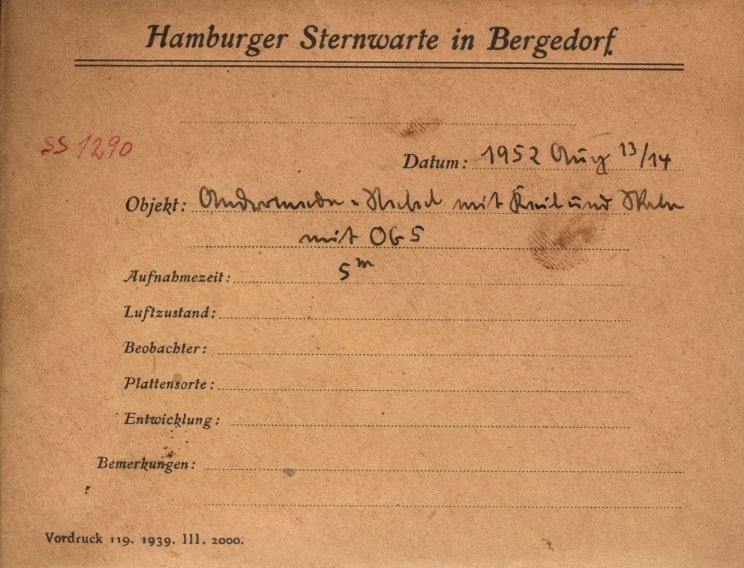 Hamburger Sternwarte in Bergedorf
SS 1290
Datum: 1952 Aug 13/14
Objekt: Andromeda-Nebel mit Keil und
mit OG 5
Aufnahmezeit: 5m
Luftzustand:
Beobachter:
Plattensorte:
Entwicklung:
Bemerkungen:
Vordruck 119. 1939. III. 2000.